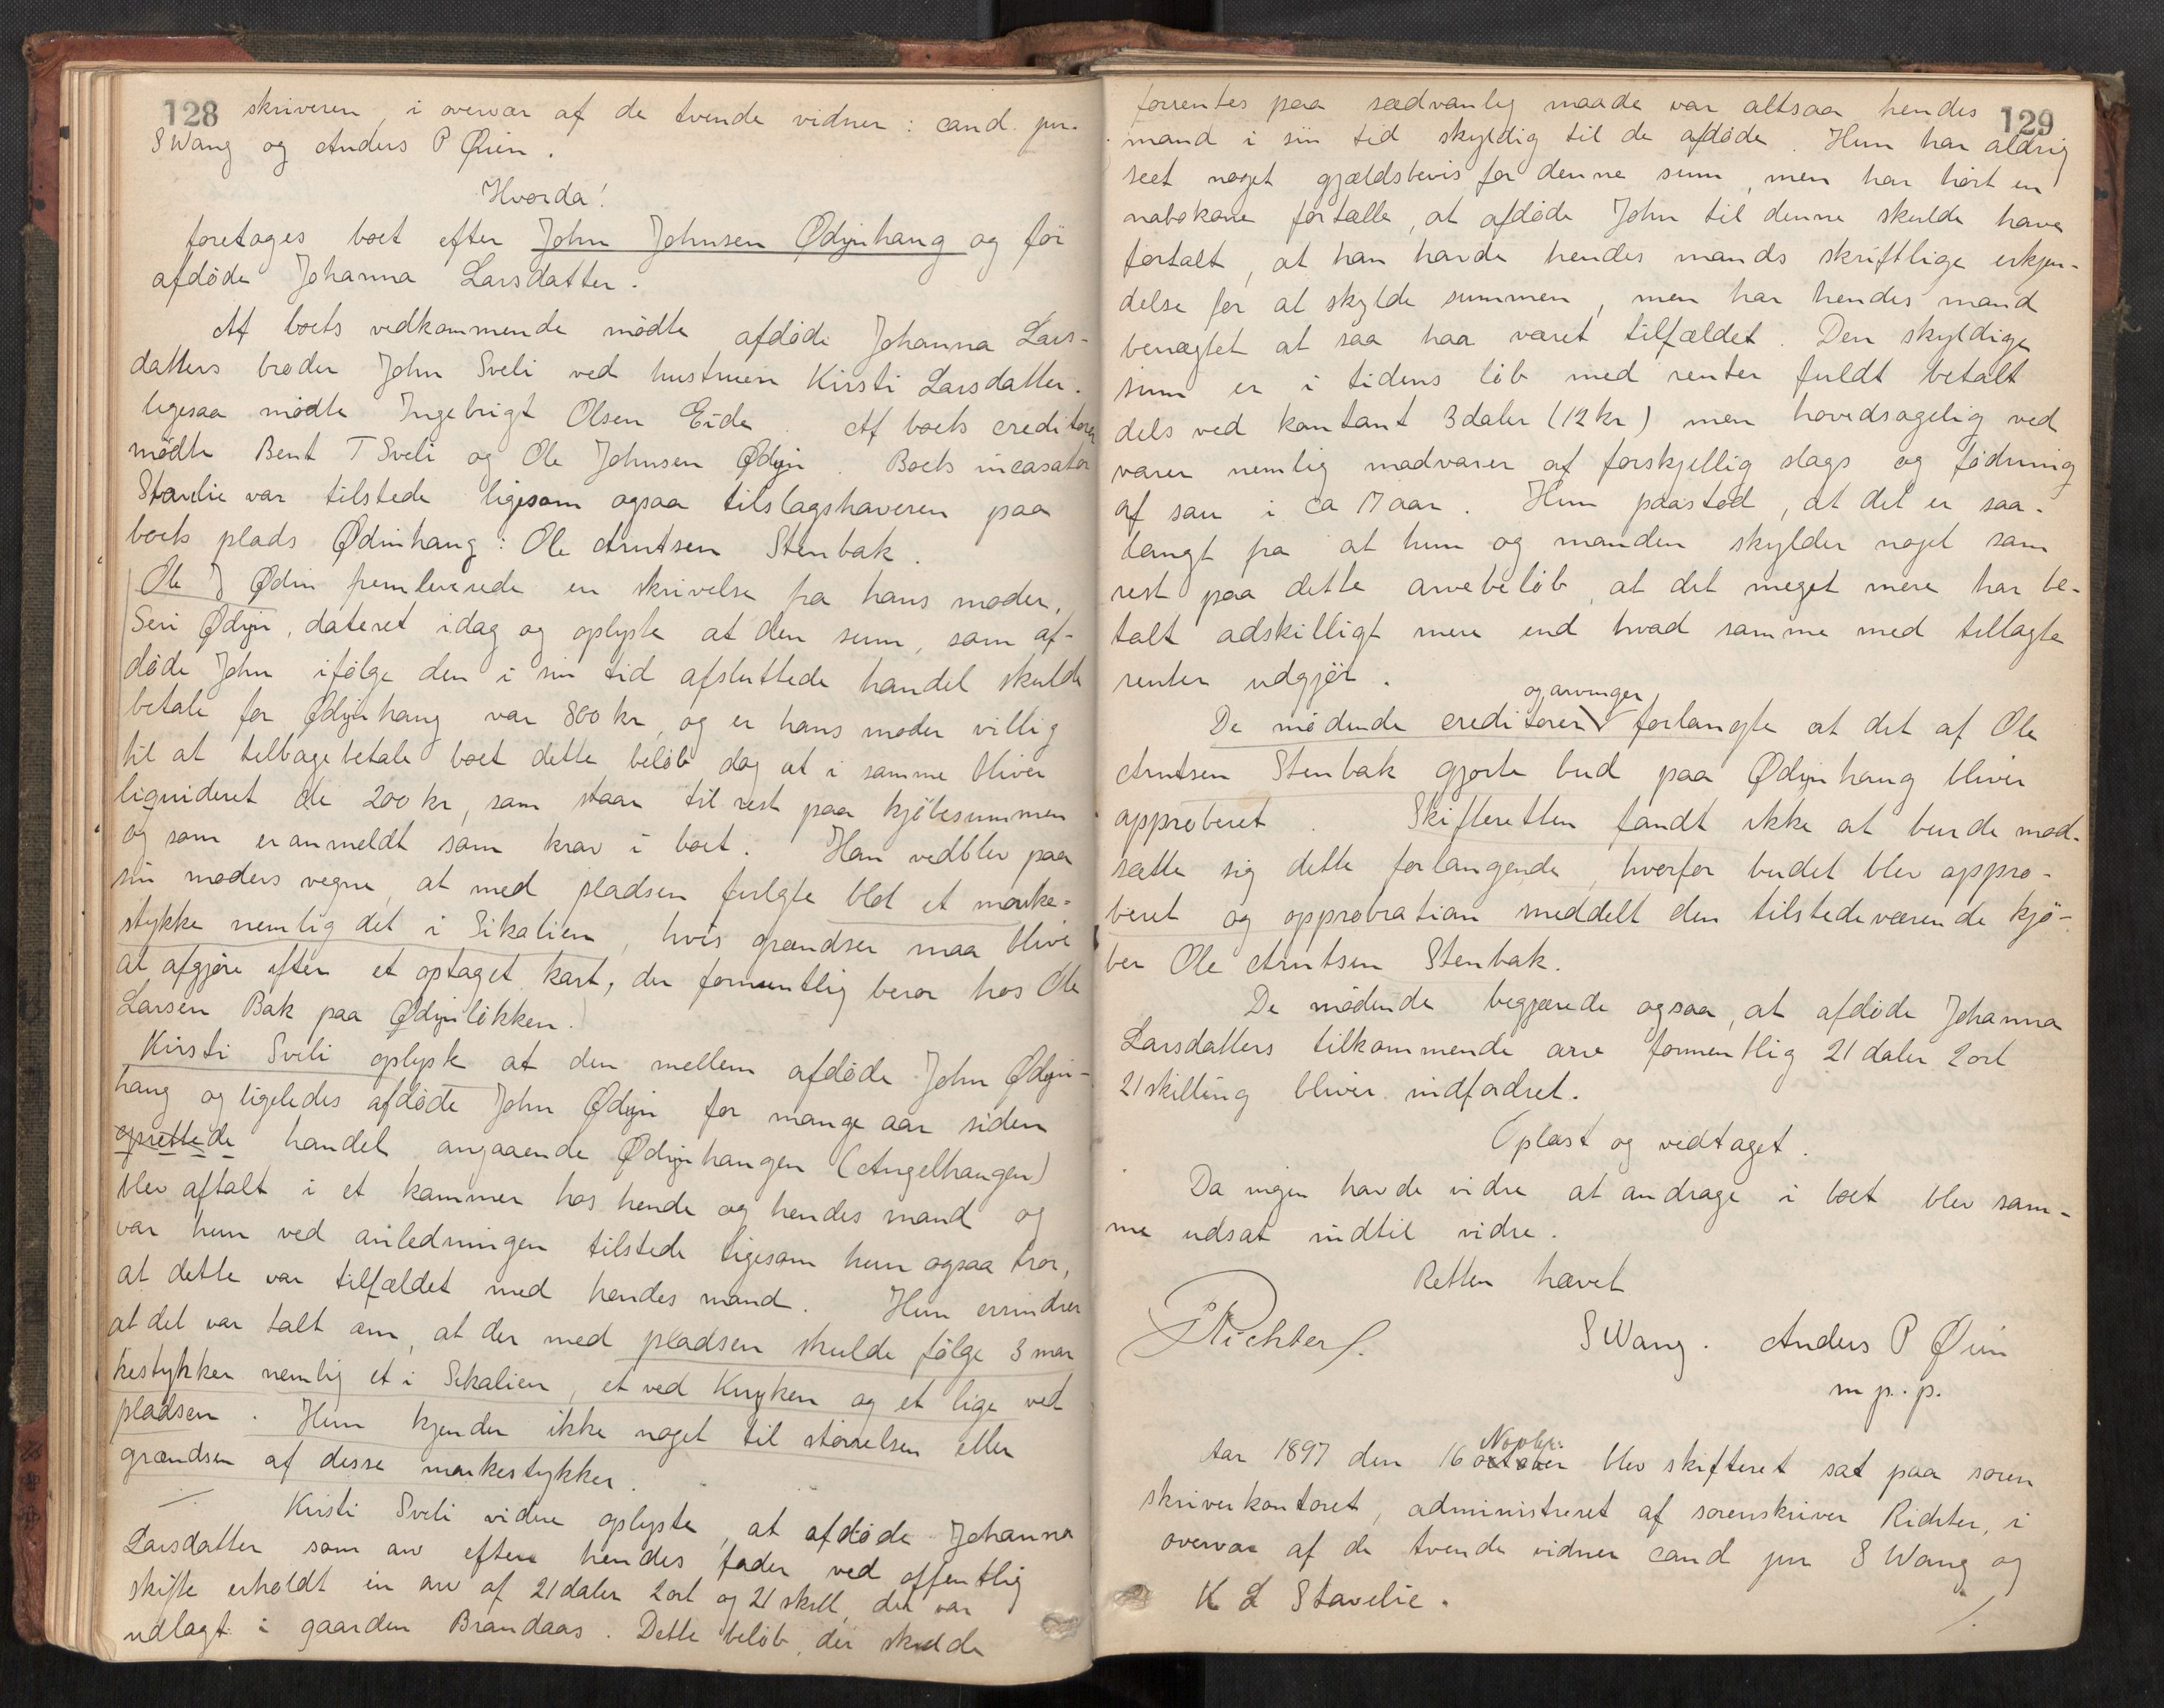 128 skriveren, i overvær af de tvende vidner: cand. jur.
S Wang og Anders P Øien.
Hvorda!
foretoges boet efter John Johnsen Ødynhaug og før
afdøde Johanna Larsdatter.
Af boets vedkommende mødte afdøde Johanna Lars-
datters broder John Sveli ved hustruen Kirsti Larsdatter.
ligesaa mødte Ingebrigt Olsen Eide. Af boets creditorer
mødte Bent T Sveli og Ole Johnsen Ødyn. Boets incasator
Stavlie var tilstede ligesom ogsaa tilslagshaveren paa
boets plads Ødinhaug: Ole Arntsen Stenbak.
Ole J Ødin fremleverede en skrivelse fra hans moder,
Seri Ødyn, dateret idag og oplyste at den sum, som af-
døde John ifølge den i sin tid afsluttede handel skulde
betale for Ødynhaug var 800 kr, og er hans moder villig
til at tilbagebetale boet dette beløb dog at i samme bliver
liquideret de 200 kr, som staar til rest paa kjøbesummen
og som er anmeldt som krav i boet. Han vedblev paa
sin moders vegne, at med pladsen fulgte blot et marke-
stykke nemlig det i Sikalien, hvis grændser maa blive
at afgjøre efter et optaget kart, der formentlig beror hos Ole
Larsen Bak paa Ødynløkken.
Kirsti Sveli oplyste at den mellem afdøde John Ødyn-
haug og ligeledes afdøde John Ødyn for mange aar siden
oprettede handel angaaende Ødynhaugen (Angelhaugen)
blev aftalt i et kammer hos hende og hendes mand og
var hun ved anledningen tilstede ligesom hun ogsaa tror,
at dette var tilfældet med hendes mand. Hun erindrer
at det var talt om, at der med pladsen skulde følge 3 mar
kestykker nemlig et i Sikalien, et ved Knyken og et lige ved
pladsen. Hun kjender ikke noget til størrelsen eller
grændsen af disse markestykker.
Kirsti Sveli videre oplyste, at afdøde Johanna
Larsdatter som arv efter hendes fader ved offentlig
skifte erholdt en arv af 21 daler 2 ort og 21 skill, der var
udlagt i gaarden Brandaas. Dette beløb, der skulde
129
forrentes paa sædvanlig maade var altsaa hendes
mand i sin tid skyldig til de afdøde. Hun har aldrig
seet noget gjældsbevis for denne sum, men har hørt en
nabokone fortælle, at afdøde John til denne skulde have
fortalt, at han havde hendes mands skriftlige erkjen-
delse for at skylde summen, men har hendes mand
benægtet at saa haa været tilfældet. Den skyldige
sum er i tidens løb med renter fuldt betalt
dels ved kontant 3 daler (12 kr) men hovedsagelig ved
varer nemlig madvarer af forskjellig slags og fødning
af sau i ca 17 aar. Hun paastod, at det er saa-
langt fra at hun og manden skylder noget som
rest paa dette arvebeløb, at det meget mere har be-
talt adskilligt mere end hvad samme med tillagte
renter udgjør.
De mødende creditorer og arvinger forlangte at det af Ole
Arntsen Stenbak gjorte bud paa Ødynhaug bliver
approberet. Skifteretten fandt ikke at burde mod-
sætte sig dette forlangende, hvorfor budet blev appro-
beret og approbration meddelt den tilstedeværende kjø-
ber Ole Arntsen Stenbak.
De mødende begjærede ogsaa, at afdøde Johanna
Larsdatters tilkommende arv formentlig 21 daler 2 ort
21 skilling bliver indfordret.
Oplæst og vedtaget.
Da ingen havde vidre at andrage i boet blev sam-
me udsat indtil vidre.
Retten hævet
Richter.
S Wang. Anders P Øien
m p. p.
Aar 1897 den 16 october Novbr. blev skifteret sat paa soren
skriverkontoret, administreret af sorenskriver Richter, i
overvær af de tvende vidner cand jur S Wang og
K L Stavelie.